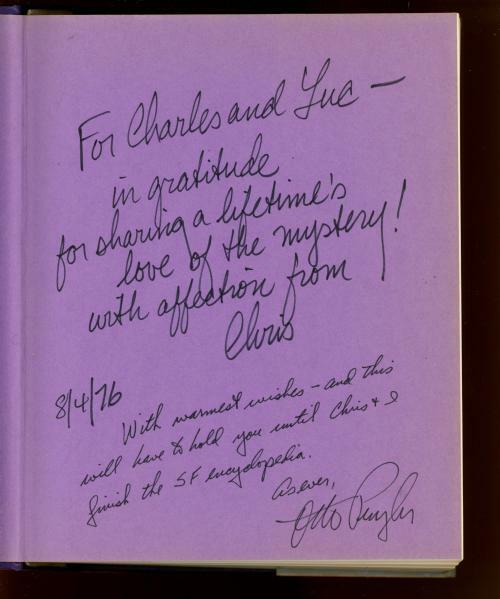 For Charles and Luc —
in gratitude
for sharing a lifetime's
love of the mystery!
with affection from
Chris
8/4/76
With warmest wishes – and this
will have to hold you until Chris + I
finish the SF encyclopedia.
As ever,
Otto Penzler